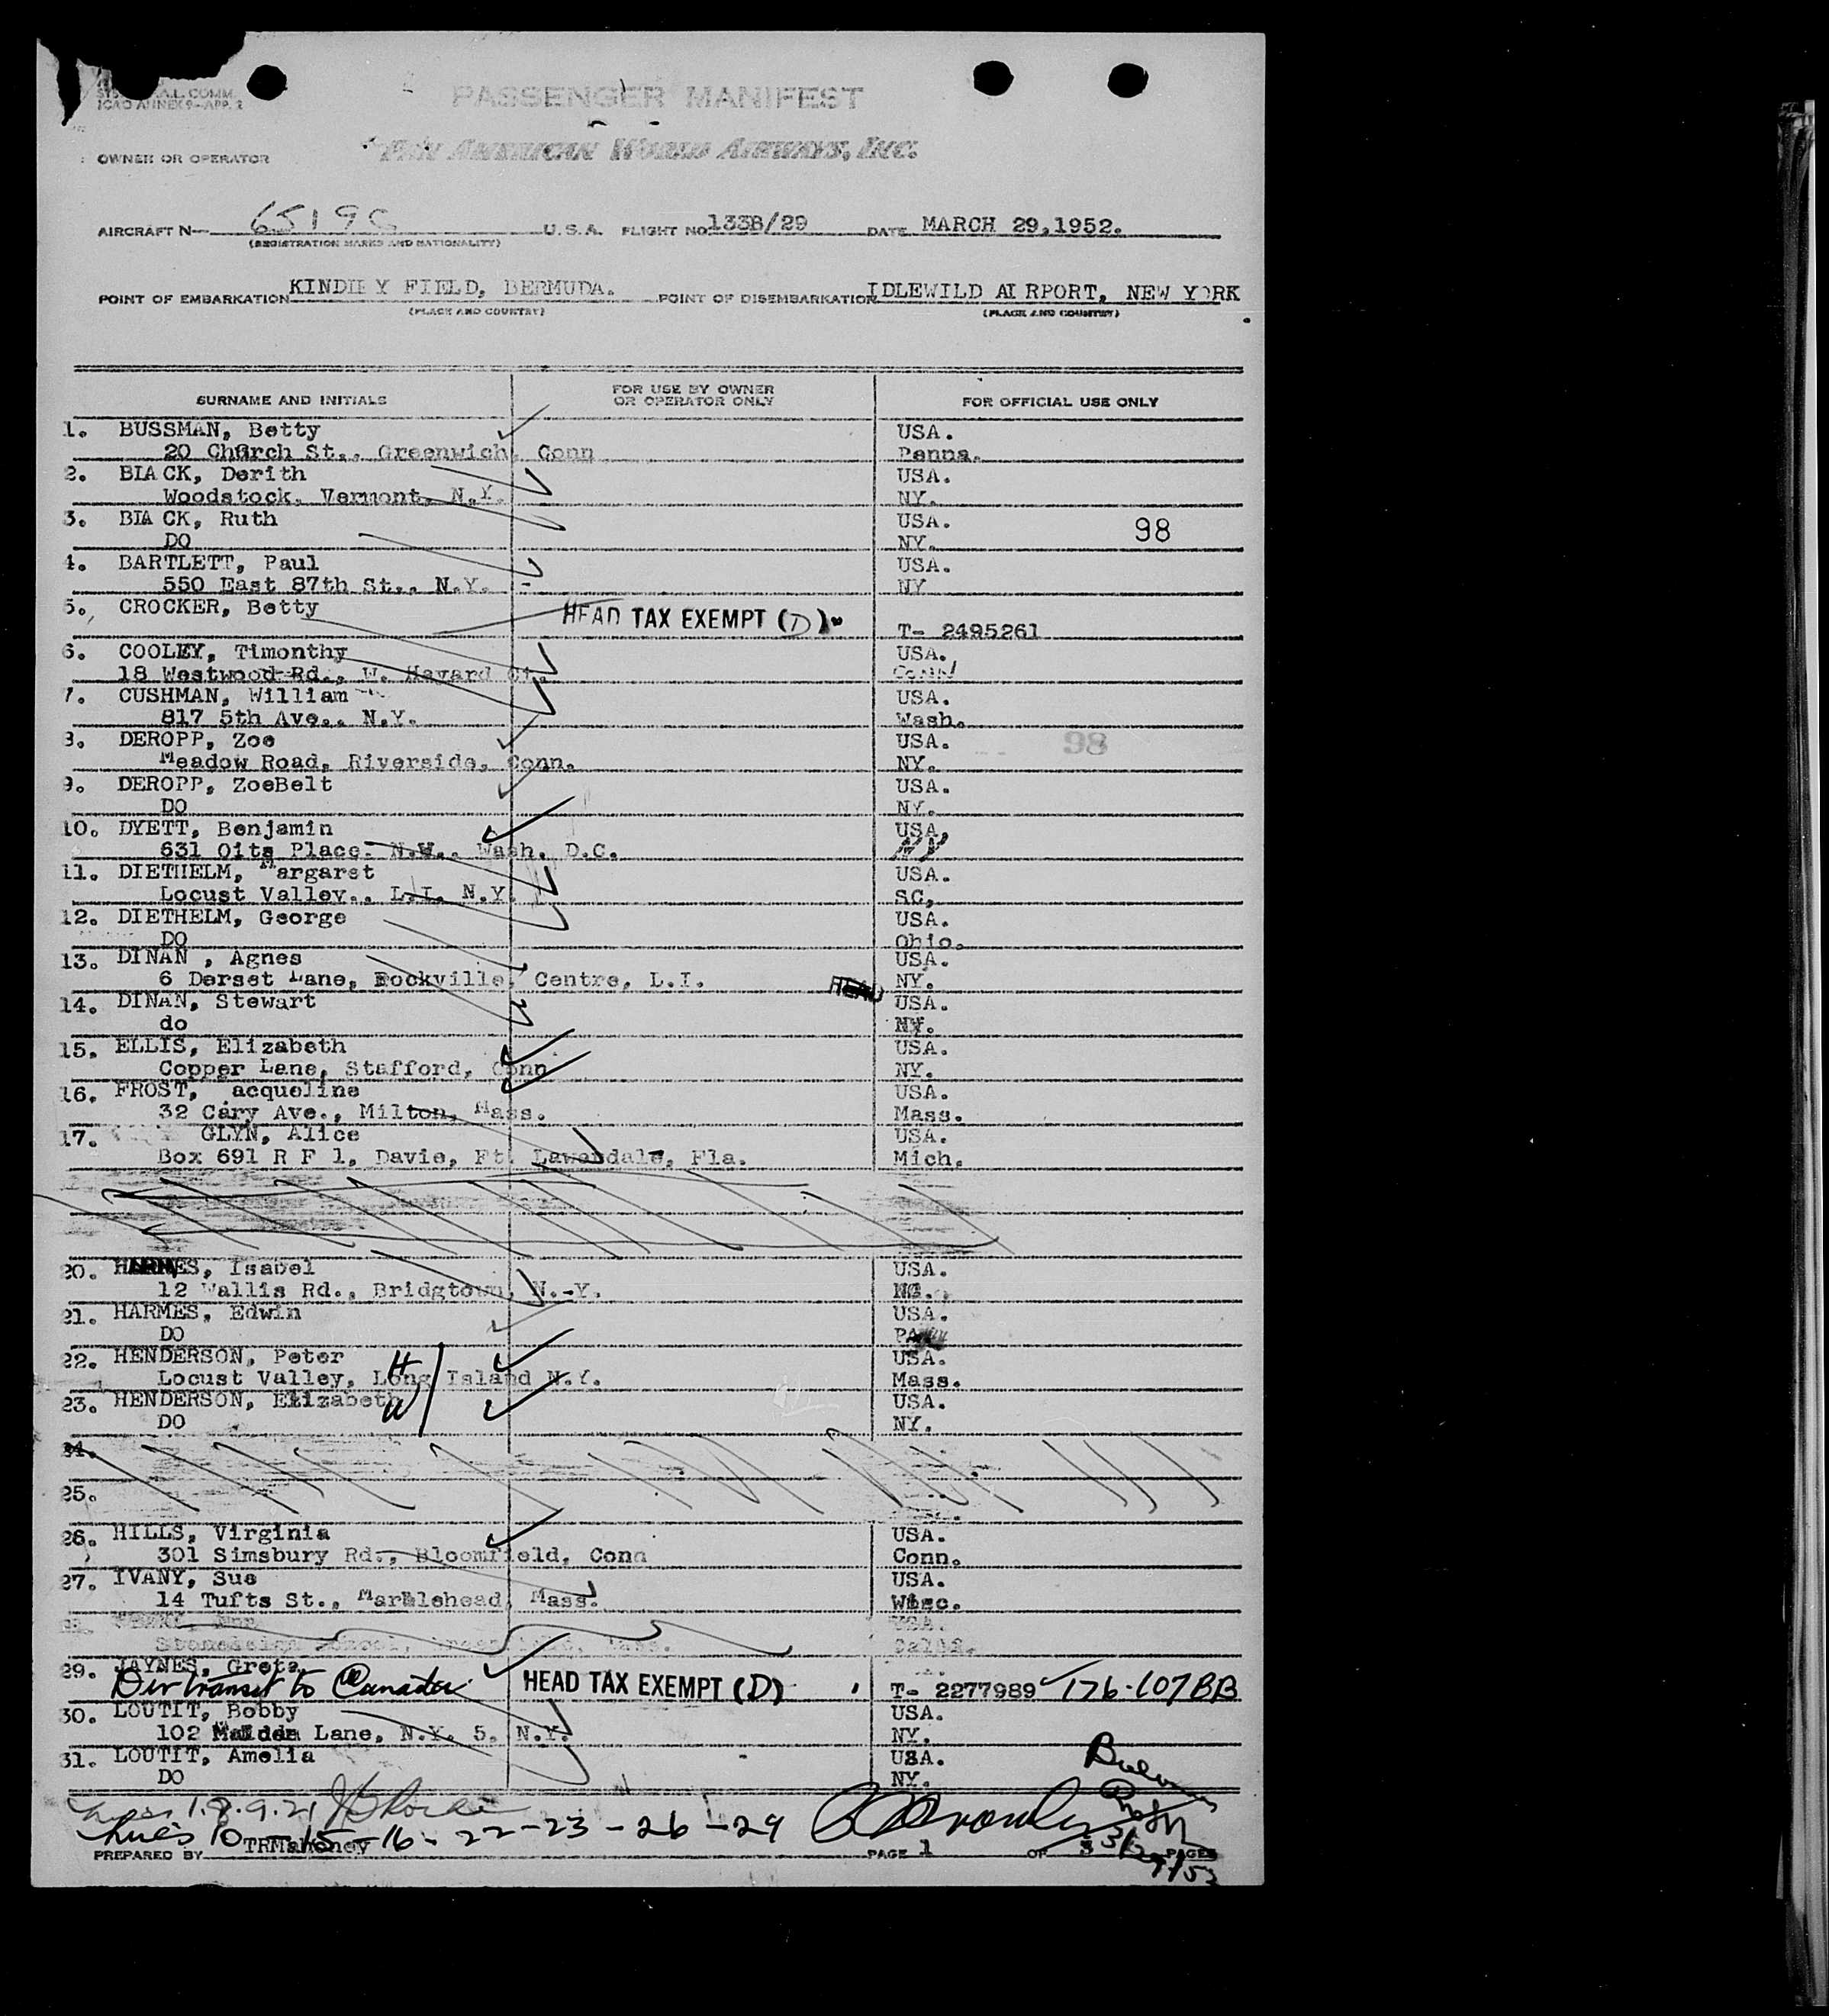 A.L. COMM.
ICAO ANNEX 9—APP. 2
PASSENGER MANIFEST
OWNER OR OPERATOR
PAN AMERICAN WORLD AIRWAYS, INC.
AIRCRAFT N— 6519C U.S.A. FLIGHT NO 133B/29 DATE MARCH 29,1952.
(REGISTRATION MARKS AND NATIONALITY)
POINT OF EMBARKATION KINDLEY FIELD, BERMUDA. POINT OF DISEMBARKATION IDLEWILD AIRPORT, NEW YORK.
(PLACE AND COUNTRY) (PLACE AND COUNTRY)
SURNAME AND INITIALS FOR USE BY OWNER OR OPERATOR ONLY FOR OFFICIAL USE ONLY
1. BUSSMAN, Betty USA.
20 Church St., Greenwich, Conn Penna.
2. BLACK, Derith USA.
Woodstock, Vermont, N.Y. NY.
3. BLACK, Ruth USA. 98
DO NY.
4. BARTLETT, Paul USA.
550 East 87th St., N.Y. - NY
5. CROCKER, Betty HEAD TAX EXEMPT (D)
T- 2495261
6. COOLEY, Timonthy USA.
18 Westwood Rd., W. Havard Ct. Conn
7. CUSHMAN, William USA.
817 5th Ave., N.Y. Wash.
8. DEROPP, Zoe USA. 98
Meadow Road, Riverside, Conn. NY.
9. DEROPP, ZoeBelt USA.
DO NY.
10. DYETT, Benjamin USA,
631 Oits Place, N.W., Wash. D.C. NY
11. DIETHELM, Margaret USA.
Locust Valley., L.I. N.Y. SC,
12. DIETHELM, George USA.
DO Ohio.
13. DINAN , Agnes USA.
6 Derset Lane, Rockville, Centre, L.I. HEAD NY.
14. DINAN, Stewart USA.
do NY.
15. ELLIS, Elizabeth USA.
Copper Lane, Stafford, Conn NY.
16. FROST, acqueline USA.
32 Cary Ave., Milton, Mass. Mass.
17. GLYN, Alice USA.
Box 691 R F 1, Davie, Ft. Lawerdale, Fla. Mich.
20. HARMES, Isabel USA.
12 Wallis Rd., Bridgtown, N.-Y.
21. HARMES, Edwin USA.
DO PA
22. HENDERSON, Peter H USA.
Locust Valley, Long Island N.Y. Mass.
23. HENDERSON, Elizabeth W USA.
DO NY.
24.
25.
26. HILLS, Virginia USA.
301 Simsbury Rd., Bloomfield, Conn Conn.
27. IVANY, Sue USA.
14 Tufts St., Marblehead, Mass. Wisc.
USA.
School, Greenfield, Mass. Calif.
29. JAYNES, Greta
Dir transit to Canada HEAD TAX EXEMPT (D) T- 2277989 176-107BB
30. LOUTIT, Bobby USA.
102 Maiden Lane, N.Y. 5, N.Y. NY.
31. LOUTIT, Amelia USA.
DO NY.
1.8.9.21
lines 10-15-16-22-23-26-29
PREPARED BY TRMahoney PAGE 1 OF 3 PAGES
3/29/52